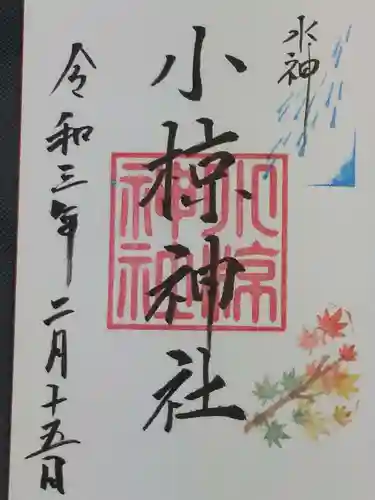 水神
小椋神社
小椋神社
令和三年 二月十五日